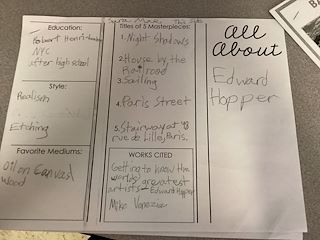 Education:
Robert Henri-
NYC
after high school
Style:
Realism
Etching
Favorite Mediums:
Oil on Canvas
Wood
Titles of 5 Masterpieces:
1. Night Shadows
2. House by the
Railroad
3. Sailing
4. Paris Street
5. Stairway at 48
rue de Lille, Paris.
WORKS CITED
Getting to know the
world's greatest
artists - Edward Hopper
Mike Venezia
All
About
Edward
Hopper
BA